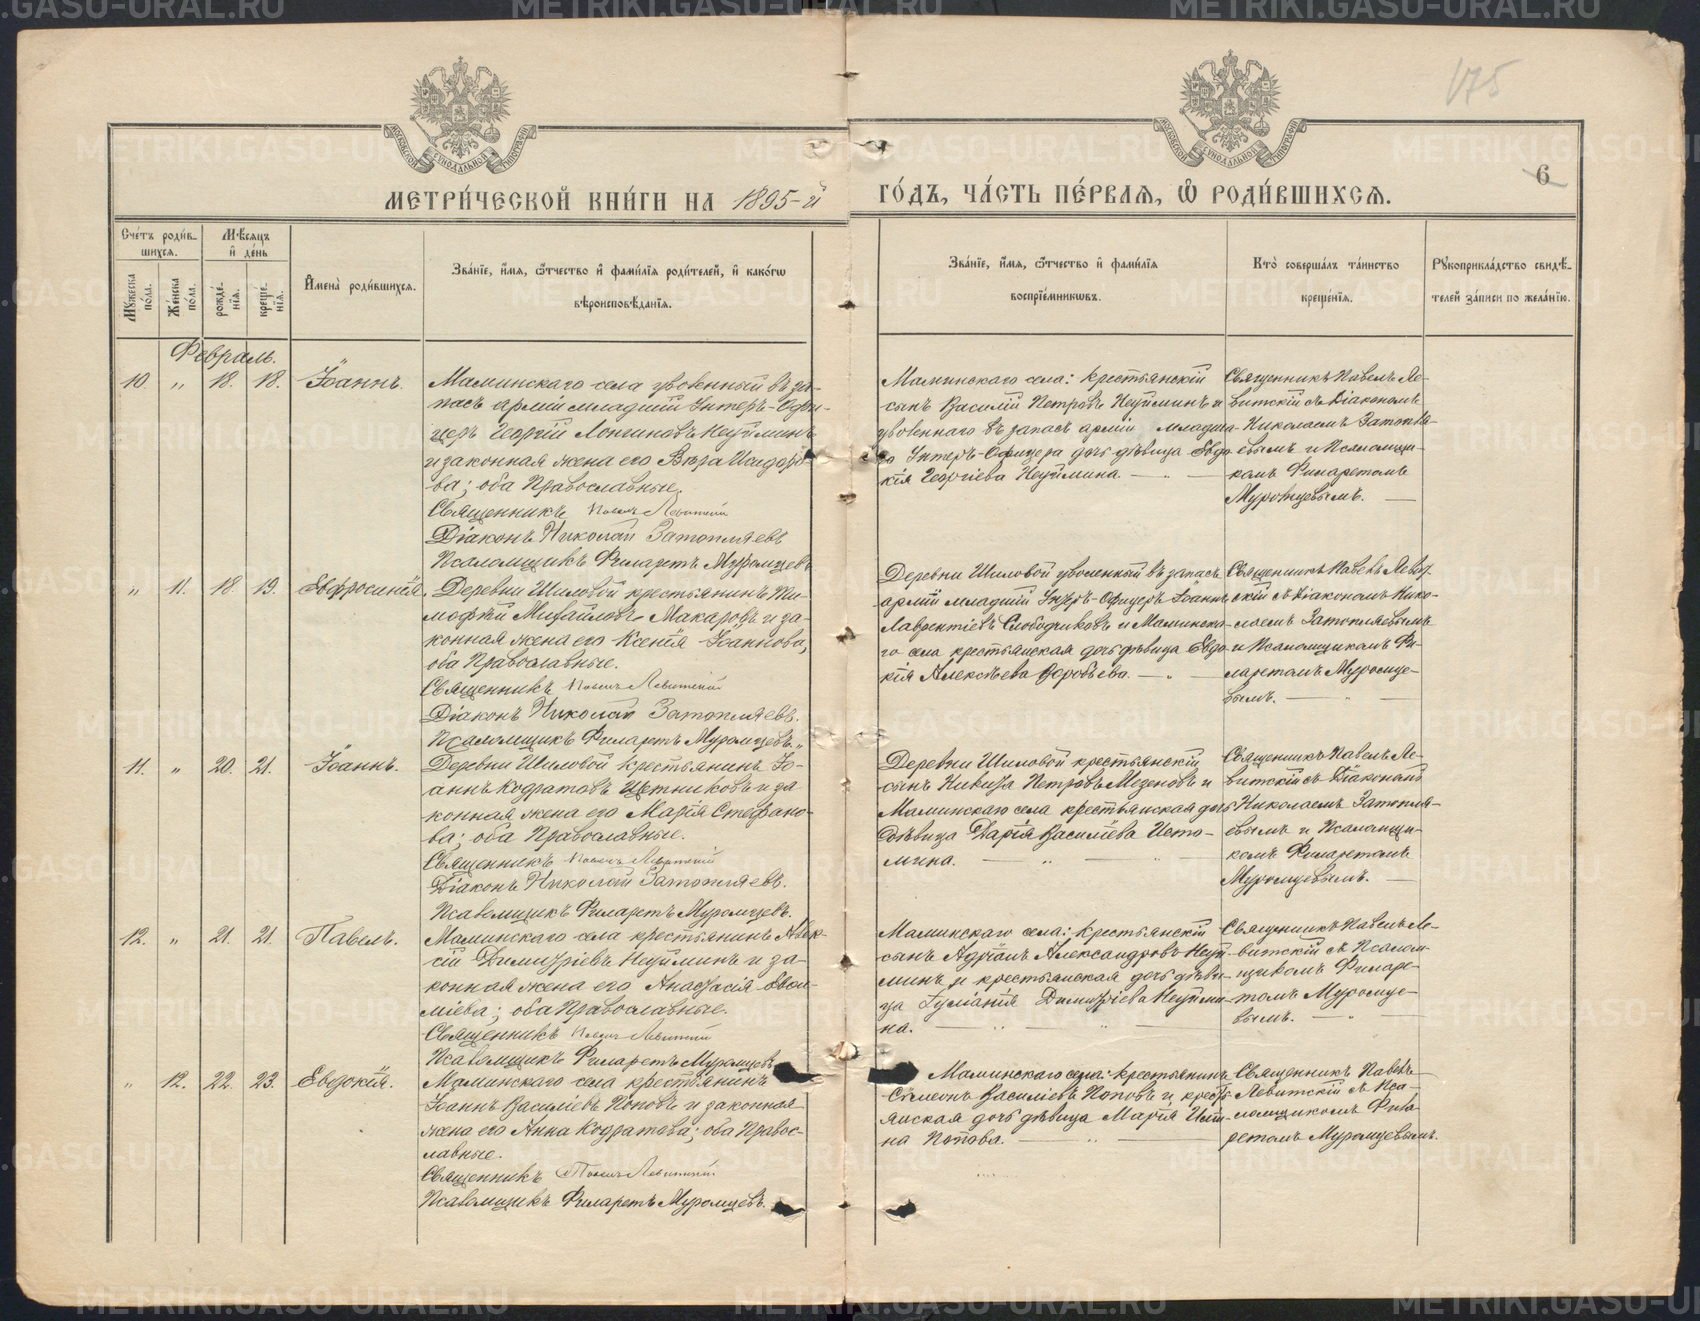 METRIKI.GASO-URAL.RU
175
МОСКОВСКОЙ СѴНОДАЛЬНОЙ ТИПОГРАФІИ
МОСКОВСКОЙ СѴНОДАЛЬНОЙ ТИПОГРАФІИ
6
МЕТРИ́ЧЕСКОЙ КНИ́ГИ НА 1895-й
ГО́ДЪ, ЧА́СТЬ ПЕ́РВАѦ, Ѡ҆ РОДИ́ВШИХСѦ.
Сче́тъ роди́в-
шихсѧ.
Мꙋ́жеска по́ла.
Же́нска по́ла.
Мѣ́сѧцъ и҆ де́нь
рожде́-
нїѧ.
креще́-
нїѧ.
И҆мена̀ роди́вшихсѧ.
Зва́нїе, и҆́мѧ, ѻ҆́тчество и҆ фами́лїѧ роди́телей, и҆ како́гѡ
вѣроисповѣ́данїѧ.
Зва́нїе, и҆́мѧ, ѻ҆́тчество и҆ фами́лїѧ
воспрїе́мникѡвъ.
Кто̀ соверша́лъ та́инство
креще́нїѧ.
Рꙋкоприкла́дство свидѣ́-
телей за́писи по жела́нїю.
Февраль.
10. „ 18. 18. Іоаннъ.
Маминскаго села уволенный въ за-
пасъ арміи младшій Унтеръ-Офи-
церъ Георгій Лонгиновъ Неуйминъ
и законная жена его Вѣра Исидоро-
ва; оба Православные.
Священникъ Павелъ Левитскій
Діаконъ Николай Затопляевъ
Псаломщикъ Филаретъ Муромцевъ
Маминскаго села: крестьянскій
сынъ Василій Петровъ Неуйминъ и
уволеннаго въ запасъ арміи младша-
го Унтеръ-Офицера дочь дѣвица Евдо
кія Георгіева Неуймина. — „ —
Священникъ Павелъ Ле-
витскій съ Діакономъ
Николаемъ Затопля-
евымъ и Псаломщи-
комъ Филаретомъ
Муромцевымъ. —
„ 11. 18 19. Евфросинія.
Деревни Шиловой крестьянинъ Ти-
мофей Михайловъ Макаровъ и за-
конная жена его Ксенія Іоаннова,
оба Православные.
Священникъ Павелъ Левитскій
Діаконъ Николай Затопляевъ.
Псаломщикъ Филаретъ Муромцевъ. „
Деревни Шиловой уволенный въ запасъ
арміи младшій Унтеръ-Офицеръ Іоаннъ
Лаврентіевъ Слободчиковъ и Маминска-
го села крестьянская дочь дѣвица Евдо
кія Алексѣева Воробьева. — „ —
Священникъ Павелъ Левит-
скій съ Діакономъ Нико-
лаемъ Затопляевымъ
и Псаломщикомъ Фи-
ларетомъ Муромце-
вымъ. — „ —
11. „ 20. 21. Іоаннъ.
Деревни Шиловой крестьянинъ Іо-
аннъ Кодратовъ Щетниковъ и за
конная жена его Марія Стефано-
ва; оба Православные.
Священникъ Павелъ Левитскій
Діаконъ Николай Затопляевъ.
Псаломщикъ Филаретъ Муромцевъ.
Деревни Шиловой крестьянскій
сынъ Никита Петровъ Мезеновъ и
Маминскаго села крестьянская дочь
дѣвица Дарія Василіева Исто-
мина. — „ — „ —
Священникъ Павелъ Ле-
витскій съ Діакономъ
Николаемъ Затопля-
евымъ и Псаломщи-
комъ Филаретомъ
Муромцевымъ. —
12. „ 21. 21. Павелъ.
Маминскаго села крестьянинъ Алек-
сій Димитріевъ Неуйминъ и за-
конная жена его Анастасія
міева; оба Православные.
Священникъ Павелъ Левитскій
Псаломщикъ Филаретъ Муромцевъ
Маминскаго села: крестьянскій
сынъ Адріанъ Александровъ Неуй-
минъ и крестьянская дочь дѣви-
ца Іуліанія Димитріева Неуйми-
на. — „ — „ —
Священникъ Павелъ Ле-
витскій съ Псалом-
щикомъ Филаре-
томъ Муромце-
вымъ. — „ —
„ 12. 22. 23. Евдокія.
Маминскаго села крестьянинъ
Іоаннъ Василіевъ Поповъ и законная
жена его Анна Кодратова; оба Правос-
лавные.
Священникъ Павелъ Левитскій
Псаломщикъ Филаретъ Муромцевъ.
Маминскаго села: крестьянинъ
Симеонъ Василіевъ Поповъ и кресть
янская дочь дѣвица Марія
на Попова. — „ —
Священникъ Павелъ
Левитскій съ Пса-
ломщикомъ Фила-
ретомъ Муромцевымъ.